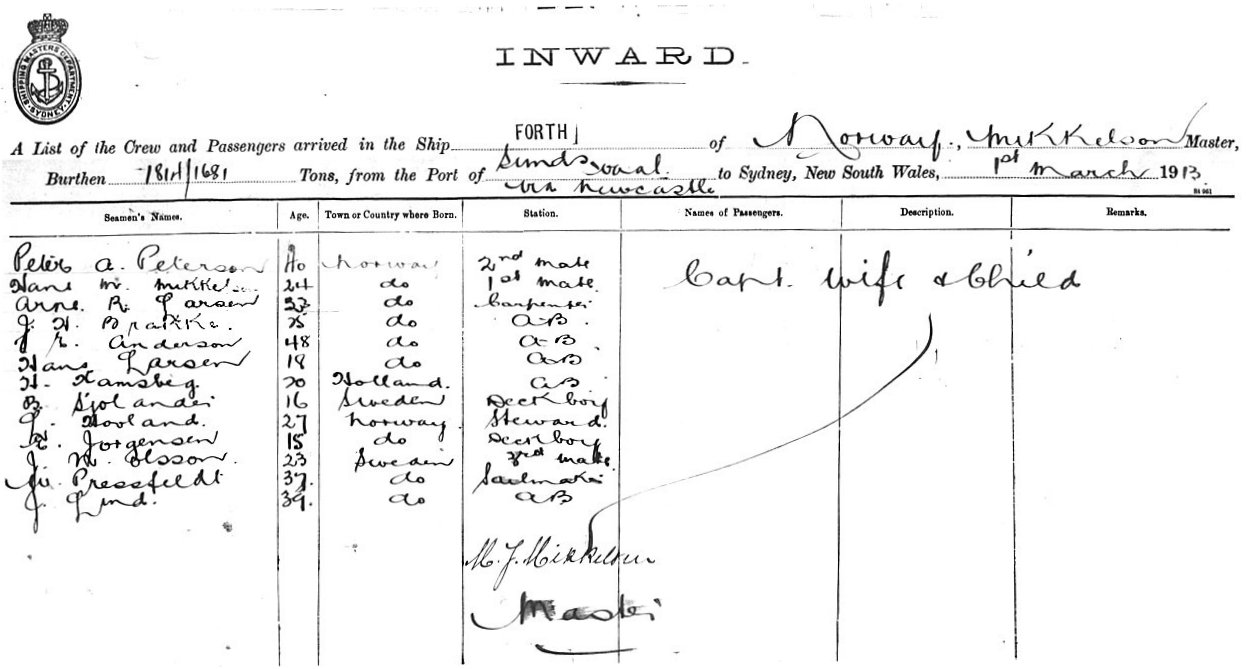 SHIPPING MASTERS DEPARTMENT SYDNEY
INWARD.
A List of the Crew and Passengers arrived in the Ship FORTH of Norway, Mikkelson Master,
Burthen 1814/1681 Tons, from the Port of Sundsvaal via Newcastle to Sydney, New South Wales, 1st March 1913.
Seamen's Names. Age. Town or Country where Born. Station. Names of Passengers. Description. Remarks.
Peter A. Peterson 40 Norway 2nd Mate Capt. Wife & Child
Hans M. Mikkelsen 24 do 1st Mate
Arne R. Larsen do Carpenter
J. H. Brakke. 25 do A-B.
J. E. Anderson 48 do A-B.
Hans Larsen 18 do A-B
H. Hamsberg. 20 Holland. A B
B. Sjolander 16 Sweden Deck boy
L. Hovland. 27 Norway Steward.
E. Jorgensen 15 do Deck boy
J. M. Olsson. 23 Sweden 3rd Mate
Pressfeldt 37. do Sailmaker
J. Lind. 39. do A-B
M. J. Mikkelsen
Master